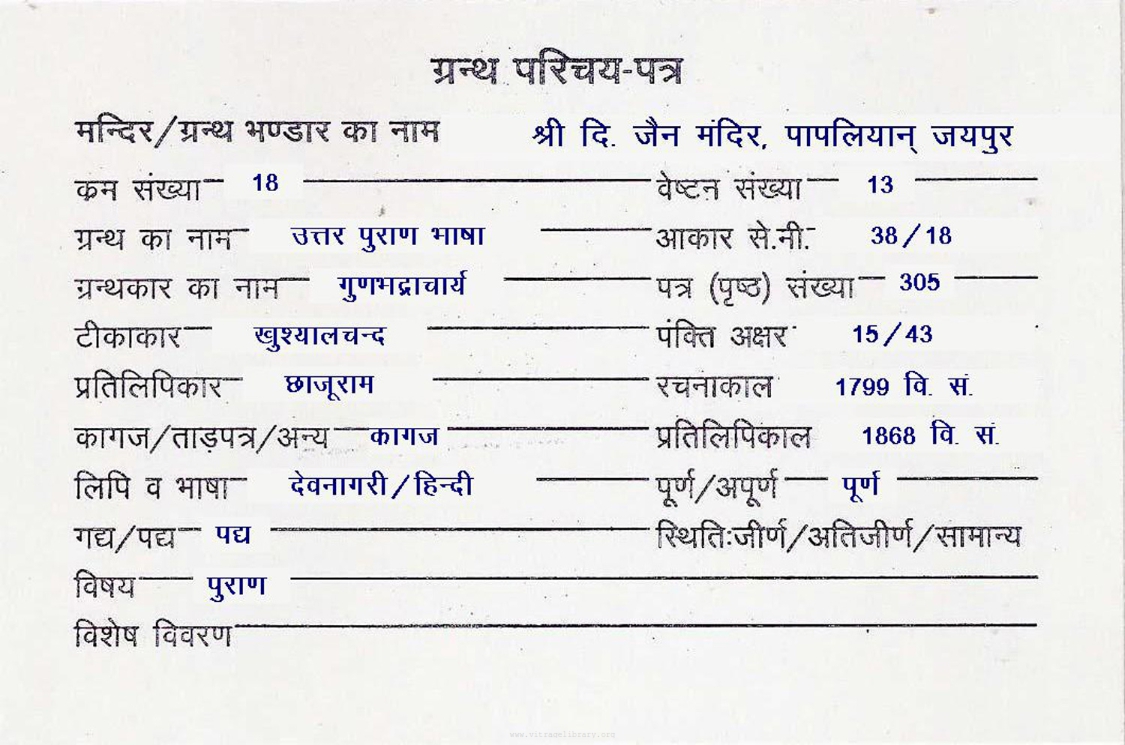 ग्रन्थ परिचय-पत्र
मन्दिर/ग्रन्थ भण्डार का नाम श्री दि. जैन मंदिर, पापलियान् जयपुर
क्रम संख्या 18 वेष्टन संख्या 13
ग्रन्थ का नाम उत्तर पुराण भाषा आकार से.मी. 38/18
ग्रन्थकार का नाम गुणभद्राचार्य पत्र (पृष्ठ) संख्या 305
टीकाकार खुश्यालचन्द पंक्ति अक्षर 15/43
प्रतिलिपिकार छाजूराम रचनाकाल 1799 वि. सं.
कागज/ताड़पत्र/अन्य कागज प्रतिलिपिकाल 1868 वि. सं.
लिपि व भाषा देवनागरी/हिन्दी पूर्ण/अपूर्ण पूर्ण
गद्य/पद्य पद्य स्थितिःजीर्ण/अतिजीर्ण/सामान्य
विषय पुराण
विशेष विवरण